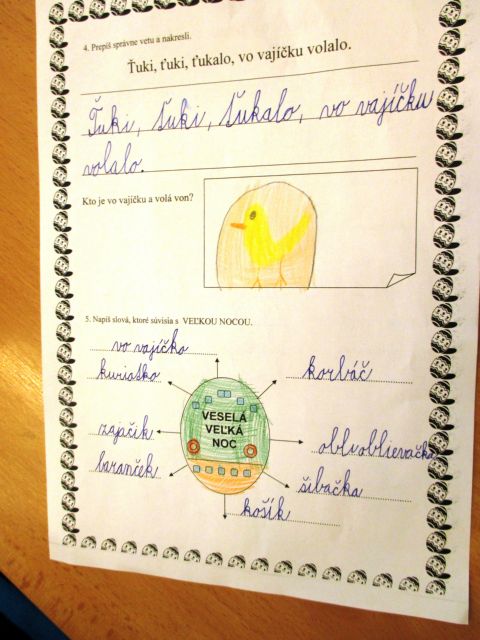 4. Prepíš správne vetu a nakresli.
Ťuki, ťuki, ťukalo, vo vajíčku volalo.
Ťuki, ťuki, ťukalo, vo vajíčku
volalo.
Kto je vo vajíčku a volá von?
5. Napíš slová, ktoré súvisia s VEĽKOU NOCOU.
vo vajíčko
kuriatko
korbáč
VESELÁ
VEĽKÁ
NOC
zajačik
baranček
šibačka
košík